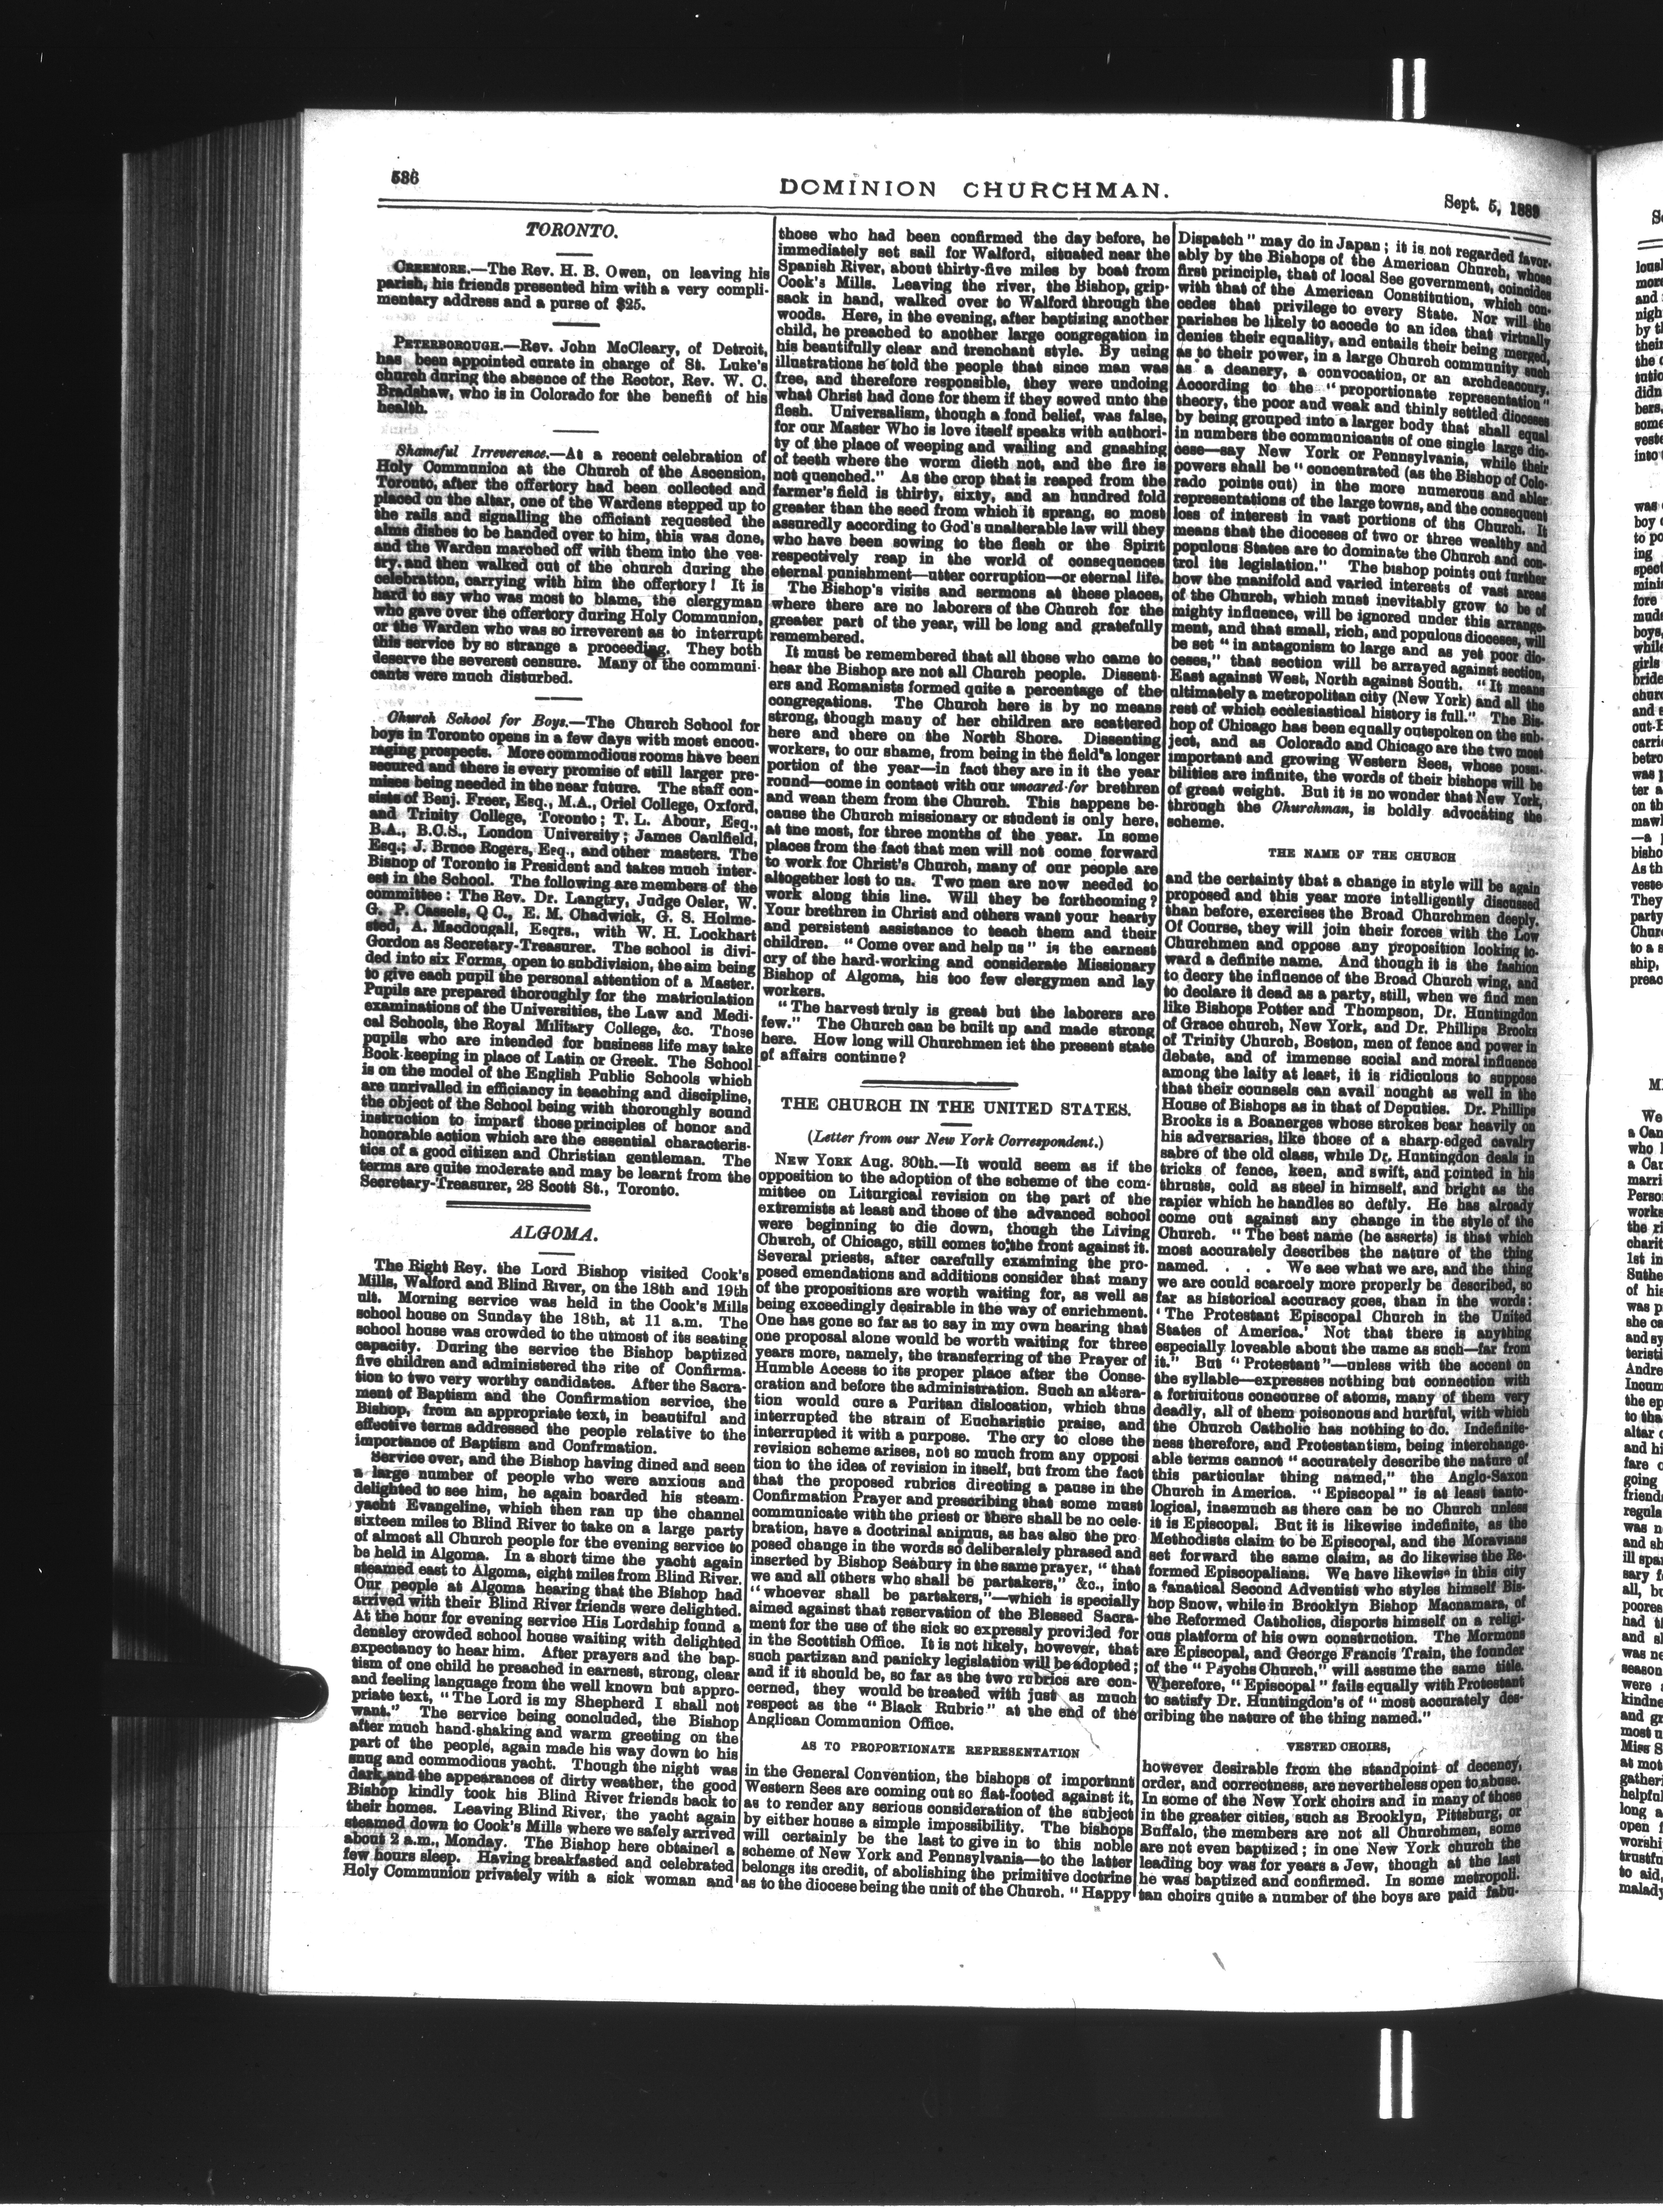 536
DOMINION CHURCHMAN.
Sept. 5, 1889
TORONTO.
CREEMORE.—The Rev. H. B. Owen, on leaving his
parish, his friends presented him with a very compli-
mentary address and a purse of $25.
PETERBOROUGH.—Rev. John McCleary, of Detroit,
has been appointed curate in charge of St. Luke's
church during the absence of the Rector, Rev. W. C.
Bradshaw, who is in Colorado for the benefit of his
health.
Shameful Irreverence.—At a recent celebration of
Holy Communion at the Church of the Ascension,
Toronto, after the offertory had been collected and
placed on the altar, one of the Wardens stepped up to
the rails and signalling the officiant requested the
alms dishes to be handed over to him, this was done,
and the Warden marched off with them into the ves-
try, and then walked out of the church during the
celebratton, carrying with him the offertory! It is
hard to say who was most to blame, the clergyman
who gave over the offertory during Holy Communion,
or the Warden who was so irreverent as to interrupt
this service by so strange a proceeding. They both
deserve the severest censure. Many of the communi-
cants were much disturbed.
Church School for Boys.—The Church School for
boys in Toronto opens in a few days with most encou-
raging prospects. More commodious rooms have been
secured and there is every promise of still larger pre-
mises being needed in the near future. The staff con-
sists of Benj. Freer, Esq., M.A., Oriel College, Oxford,
and Trinity College, Toronto; T. L. Abour, Esq.,
B.A., B.C.S., London University; James Caulfield,
Esq.; J. Bruce Rogers, Esq., and other masters. The
Bishop of Toronto is President and takes much inter-
est in the School. The following are members of the
committee: The Rev. Dr. Langtry, Judge Osler, W.
G. P. Cassels, Q C., E. M. Chadwick, G. S. Holme-
sted, A. Macdougall, Esqrs., with W. H. Lockhart
Gordon as Secretary-Treasurer. The school is divi-
ded into six Forms, open to subdivision, the aim being
to give each pupil the personal attention of a Master.
Pupils are prepared thoroughly for the matriculation
examinations of the Universities, the Law and Medi-
cal Schools, the Royal Military College, &c. Those
pupils who are intended for business life may take
Book-keeping in place of Latin or Greek. The School
is on the model of the English Public Schools which
are unrivalled in efficiancy in teaching and discipline,
the object of the School being with thoroughly sound
instruction to impart those principles of honor and
honorable action which are the essential characteris-
tics of a good citizen and Christian gentleman. The
terms are quite moderate and may be learnt from the
Secretary-Treasurer, 28 Scott St., Toronto.
ALGOMA.
The Right Rey. the Lord Bishop visited Cook's
Mills, Walford and Blind River, on the 18th and 19th
ult. Morning service was held in the Cook's Mills
school house on Sunday the 18th, at 11 a.m. The
school house was crowded to the utmost of its seating
capacity. During the service the Bishop baptized
five children and administered the rite of Confirma-
tion to two very worthy candidates. After the Sacra-
ment of Baptism and the Confirmation service, the
Bishop, from an appropriate text, in beautiful and
effective terms addressed the people relative to the
importance of Baptism and Confrmation.
Service over, and the Bishop having dined and seen
a large number of people who were anxious and
delighted to see him, he again boarded his steam-
yacht Evangeline, which then ran up the channel
sixteen miles to Blind River to take on a large party
of almost all Church people for the evening service to
be held in Algoma. In a short time the yacht again
steamed east to Algoma, eight miles from Blind River.
Our people at Algoma hearing that the Bishop had
arrived with their Blind River friends were delighted.
At the hour for evening service His Lordship found a
densley crowded school house waiting with delighted
expectancy to hear him. After prayers and the bap-
tism of one child he preached in earnest, strong, clear
and feeling language from the well known but appro-
priate text, "The Lord is my Shepherd I shall not
want." The service being concluded, the Bishop
after much hand-shaking and warm greeting on the
part of the people, again made his way down to his
snug and commodious yacht. Though the night was
dark and the appearances of dirty weather, the good
Bishop kindly took his Blind River friends back to
their homes. Leaving Blind River, the yacht again
steamed down to Cook's Mills where we safely arrived
about 2 a.m., Monday. The Bishop here obtained a
few hours sleep. Having breakfasted and celebrated
Holy Communion privately with a sick woman and
those who had been confirmed the day before, he
immediately set sail for Walford, situated near the
Spanish River, about thirty-five miles by boat from
Cook's Mills. Leaving the river, the Bishop, grip-
sack in hand, walked over to Walford through the
woods. Here, in the evening, after baptizing another
child, he preached to another large congregation in
his beautifully clear and trenchant style. By using
illustrations he told the people that since man was
free, and therefore responsible, they were undoing
what Christ had done for them if they sowed unto the
flesh. Universalism, though a fond belief, was false,
for our Master Who is love itself speaks with authori-
ty of the place of weeping and wailing and gnashing
of teeth where the worm dieth not, and the fire is
not quenched." As the crop that is reaped from the
farmer's field is thirty, sixty, and an hundred fold
greater than the seed from which it sprang, so most
assuredly according to God's unalterable law will they
who have been sowing to the flesh or the Spirit
respectively reap in the world of consequences
eternal punishment—utter corruption—or eternal life.
The Bishop's visits and sermons at these places,
where there are no laborers of the Church for the
greater part of the year, will be long and gratefully
remembered.
It must be remembered that all those who came to
hear the Bishop are not all Church people. Dissent-
ers and Romanists formed quite a percentage of the
congregations. The Church here is by no means
strong, though many of her children are scattered
here and there on the North Shore. Dissenting
workers, to our shame, from being in the field a longer
portion of the year—in fact they are in it the year
round—come in contact with our uncared-for brethren
and wean them from the Church. This happens be-
cause the Church missionary or student is only here,
at the most, for three months of the year. In some
places from the fact that men will not come forward
to work for Christ's Church, many of our people are
altogether lost to us. Two men are now needed to
work along this line. Will they be forthcoming?
Your brethren in Christ and others want your hearty
and persistent assistance to teach them and their
children. "Come over and help us" is the earnest
cry of the hard-working and considerate Missionary
Bishop of Algoma, his too few clergymen and lay
workers.
"The harvest truly is great but the laborers are
few." The Church can be built up and made strong
here. How long will Churchmen let the present state
of affairs continue?
THE CHURCH IN THE UNITED STATES.
(Letter from our New York Correspondent.)
NEW YORK Aug. 30th.—It would seem as if the
opposition to the adoption of the scheme of the com-
mittee on Liturgical revision on the part of the
extremists at least and those of the advanced school
were beginning to die down, though the Living
Church, of Chicago, still comes to the front against it.
Several priests, after carefully examining the pro-
posed emendations and additions consider that many
of the propositions are worth waiting for, as well as
being exceedingly desirable in the way of enrichment.
One has gone so far as to say in my own hearing that
one proposal alone would be worth waiting for three
years more, namely, the transferring of the Prayer of
Humble Access to its proper place after the Conse-
cration and before the administration. Such an altera-
tion would cure a Puritan dislocation, which thus
interrupted the strain of Eucharistic praise, and
interrupted it with a purpose. The cry to close the
revision scheme arises, not so much from any opposi
tion to the idea of revision in itself, but from the fact
that the proposed rubrics directing a pause in the
Confirmation Prayer and prescribing that some must
communicate with the priest or there shall be no cele-
bration, have a doctrinal animus, as has also the pro
posed change in the words so deliberalely phrased and
inserted by Bishop Seabury in the same prayer, "that
we and all others who shall be partakers," &c., into
"whoever shall be partakers,"—which is specially
aimed against that reservation of the Blessed Sacra-
ment for the use of the sick so expressly provided for
in the Scottish Office. It is not likely, however, that
such partizan and panicky legislation will be adopted;
and if it should be, so far as the two rubrics are con-
cerned, they would be treated with just as much
respect as the "Black Rubric" at the end of the
Anglican Communion Office.
AS TO PROPORTIONATE REPRESENTATION
in the General Convention, the bishops of important
Western Sees are coming out so flat-footed against it,
as to render any serious consideration of the subject
by either house a simple impossibility. The bishops
will certainly be the last to give in to this noble
scheme of New York and Pennsylvania—to the latter
belongs its credit, of abolishing the primitive doctrine
as to the diocese being the unit of the Church. "Happy
Dispatch" may do in Japan; it is not regarded favor-
ably by the Bishops of the American Church, whose
first principle, that of local See government, coincides
with that of the American Constitution, which con-
cedes that privilege to every State. Nor will the
parishes be likely to accede to an idea that virtually
denies their equality, and entails their being merged,
as to their power, in a large Church community such
as a deanery, a convocation, or an archdeaconry.
According to the "proportionate representation"
theory, the poor and weak and thinly settled dioceses
by being grouped into a larger body that shall equal
in numbers the communicants of one single large dio-
cese—say New York or Pennsylvania, while their
powers shall be "concentrated (as the Bishop of Colo-
rado points out) in the more numerous and abler
representations of the large towns, and the consequent
loss of interest in vast portions of ths Church. It
means that the dioceses of two or three wealthy and
populous States are to dominate the Church and con-
trol its legislation." The bishop points out further
how the manifold and varied interests of vast areas
of the Church, which must inevitably grow to be of
mighty influence, will be ignored under this arrange-
ment, and that small, rich, and populous dioceses, will
be set "in antagonism to large and as yet poor dio-
ceses," that section will be arrayed against section,
East against West, North against South. "It means
ultimately a metropolitan city (New York) and all the
rest of which ecclesiastical history is full." The Bis-
hop of Chicago has been equally outspoken on the sub-
ject, and as Colorado and Chicago are the two most
important and growing Western Sees, whose possi-
bilities are infinite, the words of their bishops will be
of great weight. But it is no wonder that New York,
through the Churchman, is boldly advocating the
scheme.
THE NAME OF THE CHURCH
and the certainty that a change in style will be again
proposed and this year more intelligently discussed
than before, exercises the Broad Churchmen deeply.
Of Course, they will join their forces with the Low
Churchmen and oppose any proposition looking to-
ward a definite name. And though it is the fashion
to decry the influence of the Broad Church wing, and
to declare it dead as a party, still, when we find men
like Bishops Potter and Thompson, Dr. Huntingdon
of Grace church, New York, and Dr. Phillips Brooks
of Trinity Church, Boston, men of fence and power in
debate, and of immense social and moral influence
among the laity at least, it is ridiculous to suppose
that their counsels can avail nought as well in the
House of Bishops as in that of Deputies. Dr. Phillips
Brooks is a Boanerges whose strokes bear heavily on
his adversaries, like those of a sharp-edged cavalry
sabre of the old class, while Dr. Huntingdon deals in
tricks of fence, keen, and swift, and pointed in his
thrusts, cold as steel in himself, and bright as the
rapier which he handles so deftly. He has already
come out against any change in the style of the
Church. "The best name (he asserts) is that which
most accurately describes the nature of the thing
named. . . . We see what we are, and the thing
we are could scarcely more properly be described, so
far as historical accuracy goes, than in the words:
'The Protestant Episcopal Church in the United
States of America.' Not that there is anything
especially loveable about the name as such—far from
it." But "Protestant"—unless with the accent on
the syllable—expresses nothing but connection with
a fortuitous concourse of atoms, many of them very
deadly, all of them poisonous and hurtful, with which
the Church Catholic has nothing to do. Indefinite-
ness therefore, and Protestantism, being interchange-
able terms cannot "accurately describe the nature of
this particular thing named," the Anglo-Saxon
Church in America. "Episcopal" is at least tauto-
logical, inasmuch as there can be no Church unless
it is Episcopal. But it is likewise indefinite, as the
Methodists claim to be Episcopal, and the Moravians
set forward the same claim, as do likewise the Re-
formed Episcopalians. We have likewise in this city
a fanatical Second Adventist who styles himself Bis-
hop Snow, while in Brooklyn Bishop Macnamara, of
the Reformed Catholics, disports himself on a religi-
ous platform of his own construction. The Mormons
are Episcopal, and George Francis Train, the founder
of the "Psychs Church," will assume the same title.
Wherefore, "Episcopal" fails equally with Protestant
to satisfy Dr. Huntingdon's of "most accurately des-
cribing the nature of the thing named."
VESTED CHOIRS,
however desirable from the standpoint of decency,
order, and correctness, are nevertheless open to abuse.
In some of the New York choirs and in many of those
in the greater cities, such as Brooklyn, Pittsburg, or
Buffalo, the members are not all Churchmen, some
are not even baptized; in one New York church the
leading boy was for years a Jew, though at the last
he was baptized and confirmed. In some metropoli-
tan choirs quite a number of the boys are paid fabu-